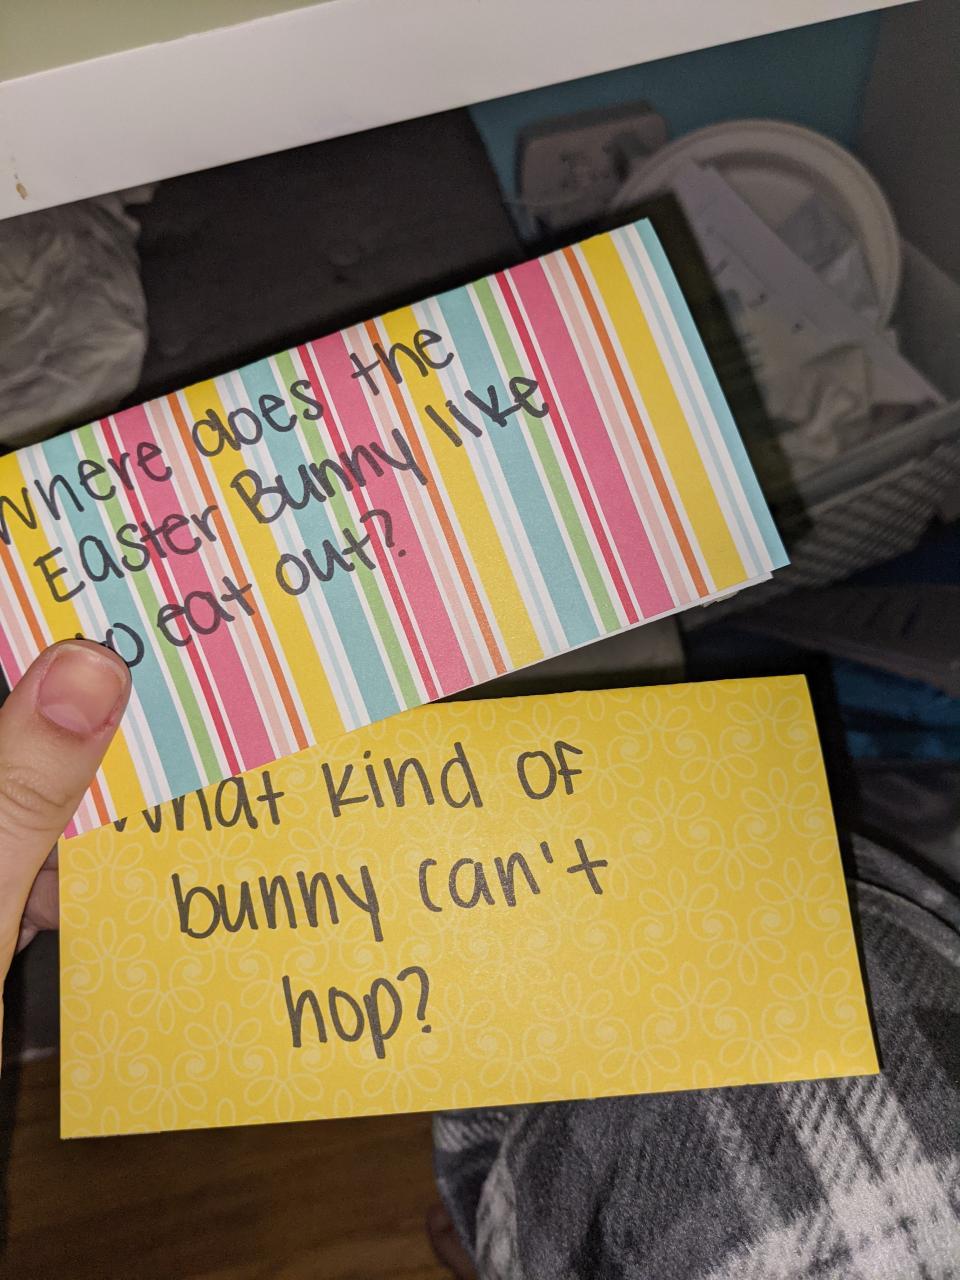 Where does the
Easter Bunny like
to eat out?
What kind of
bunny can't
hop?